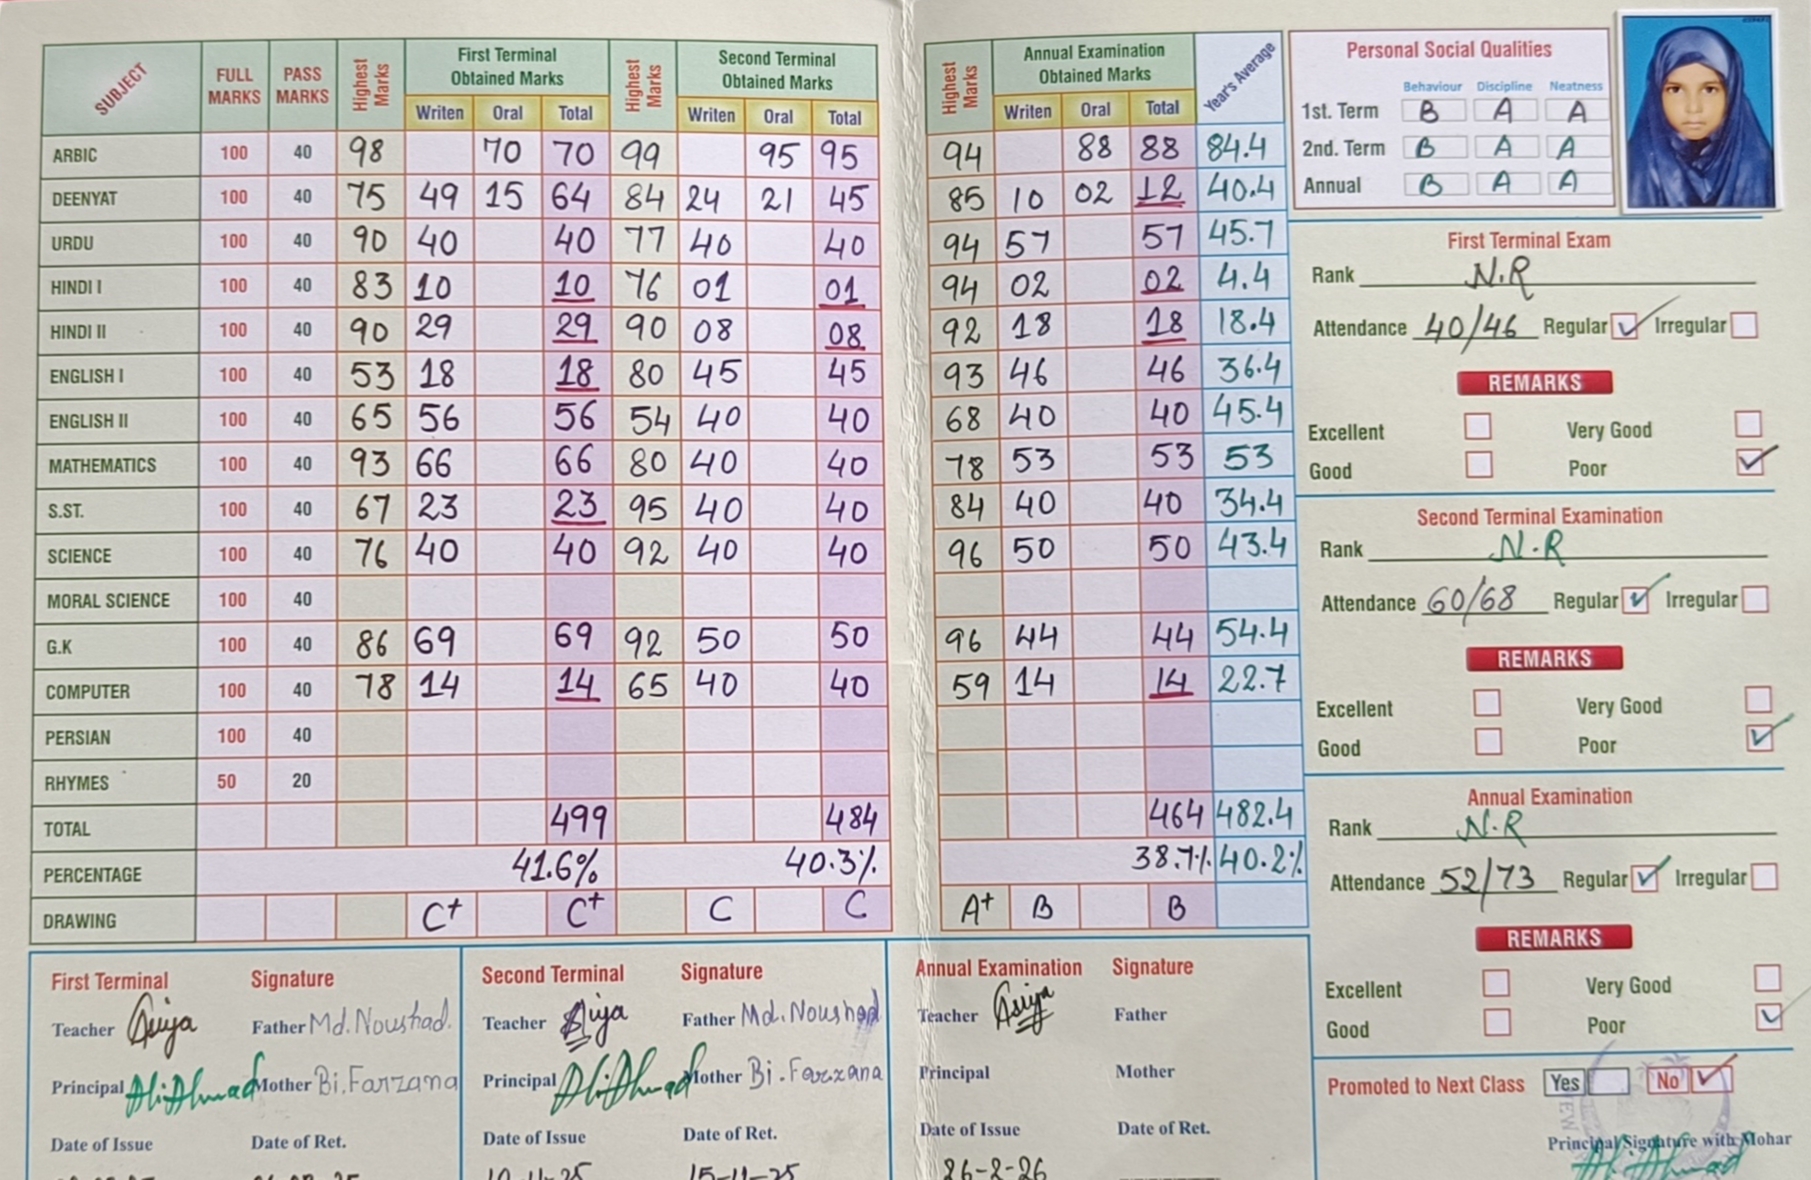 SUBJECT FULL MARKS PASS MARKS Highest Marks First Terminal Obtained Marks Highest Marks Second Terminal Obtained Marks Highest Marks Annual Examination Obtained Marks Year's Average
Writen Oral Total Writen Oral Total Writen Oral Total
ARBIC 100 40 98 70 70 99 95 95 94 88 88 84.4
DEENYAT 100 40 75 49 15 64 84 24 21 45 85 10 02 12 40.4
URDU 100 40 90 40 40 77 40 40 94 57 57 45.7
HINDI I 100 40 83 10 10 76 01 01 94 02 02 4.4
HINDI II 100 40 90 29 29 90 08 08 92 18 18 18.4
ENGLISH I 100 40 53 18 18 80 45 45 93 46 46 36.4
ENGLISH II 100 40 65 56 56 54 40 40 68 40 40 45.4
MATHEMATICS 100 40 93 66 66 80 40 40 78 53 53 53
S.ST. 100 40 67 23 23 95 40 40 84 40 40 34.4
SCIENCE 100 40 76 40 40 92 40 40 96 50 50 43.4
MORAL SCIENCE 100 40
G.K 100 40 86 69 69 92 50 50 96 44 44 54.4
COMPUTER 100 40 78 14 14 65 40 40 59 14 14 22.7
PERSIAN 100 40
RHYMES 50 20
TOTAL 499 484 464 482.4
PERCENTAGE 41.6% 40.3% 38.7% 40.2%
DRAWING C+ C+ C C A+ B B
First Terminal Signature
Teacher Asiya Father Md. Noushad.
Principal Ali Ahmad Mother Bi. Farzana
Date of Issue Date of Ret.
Second Terminal Signature
Teacher Asiya Father Md. Noushad
Principal Ali Ahmad Mother Bi. Farzana
Date of Issue Date of Ret.
10-11-25 15-11-25
Annual Examination Signature
Teacher Asiya Father
Principal Mother
Date of Issue Date of Ret.
26-2-26
Personal Social Qualities
Behaviour Discipline Neatness
1st. Term B A A
2nd. Term B A A
Annual B A A
First Terminal Exam
Rank N.R
Attendance 40/46 Regular Irregular
REMARKS
Excellent Very Good
Good Poor
Second Terminal Examination
Rank N.R
Attendance 60/68 Regular Irregular
REMARKS
Excellent Very Good
Good Poor
Annual Examination
Rank N.R
Attendance 52/73 Regular Irregular
REMARKS
Excellent Very Good
Good Poor
Promoted to Next Class Yes No
Principal Signature with Mohar
Ali Ahmad